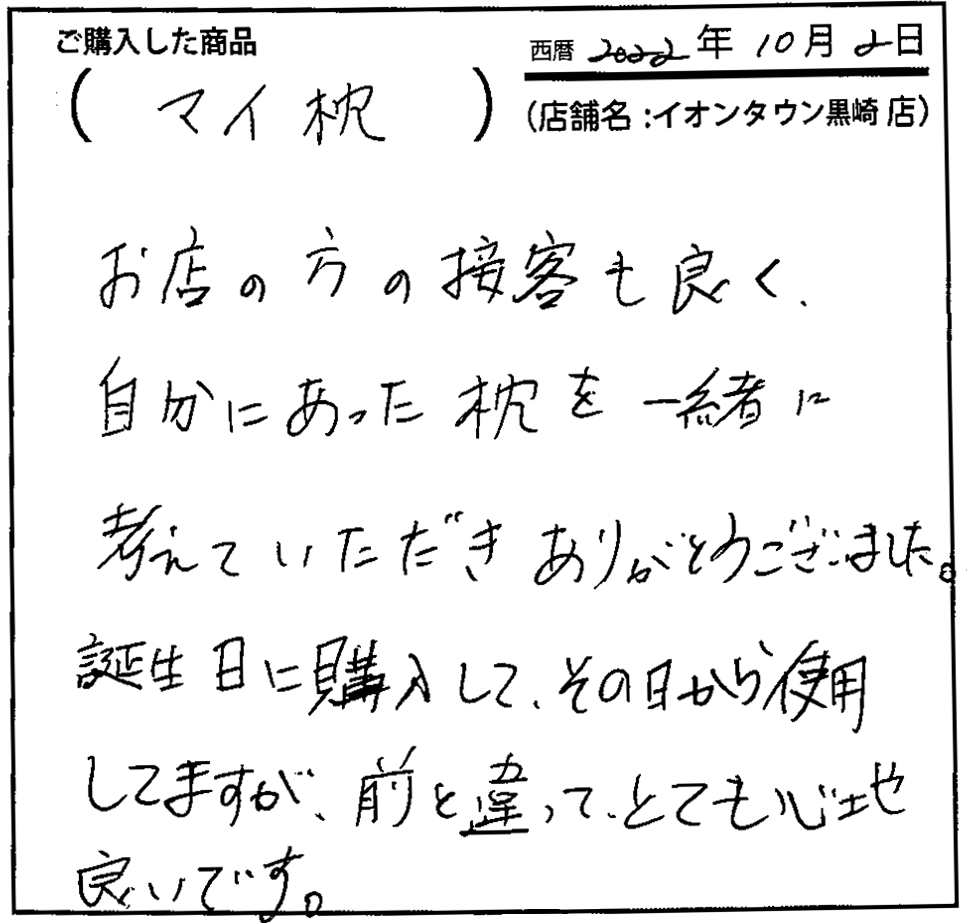 ご購入した商品
西暦 2022年 10月 2日
( マイ枕 )
(店舗名:イオンタウン黒崎 店)
お店の方の接客も良く、
自分にあった枕を一緒に
考えていただきありがとうございました。
誕生日に購入して、その日から使用
してますが、前と違って、とても心地
良いです。